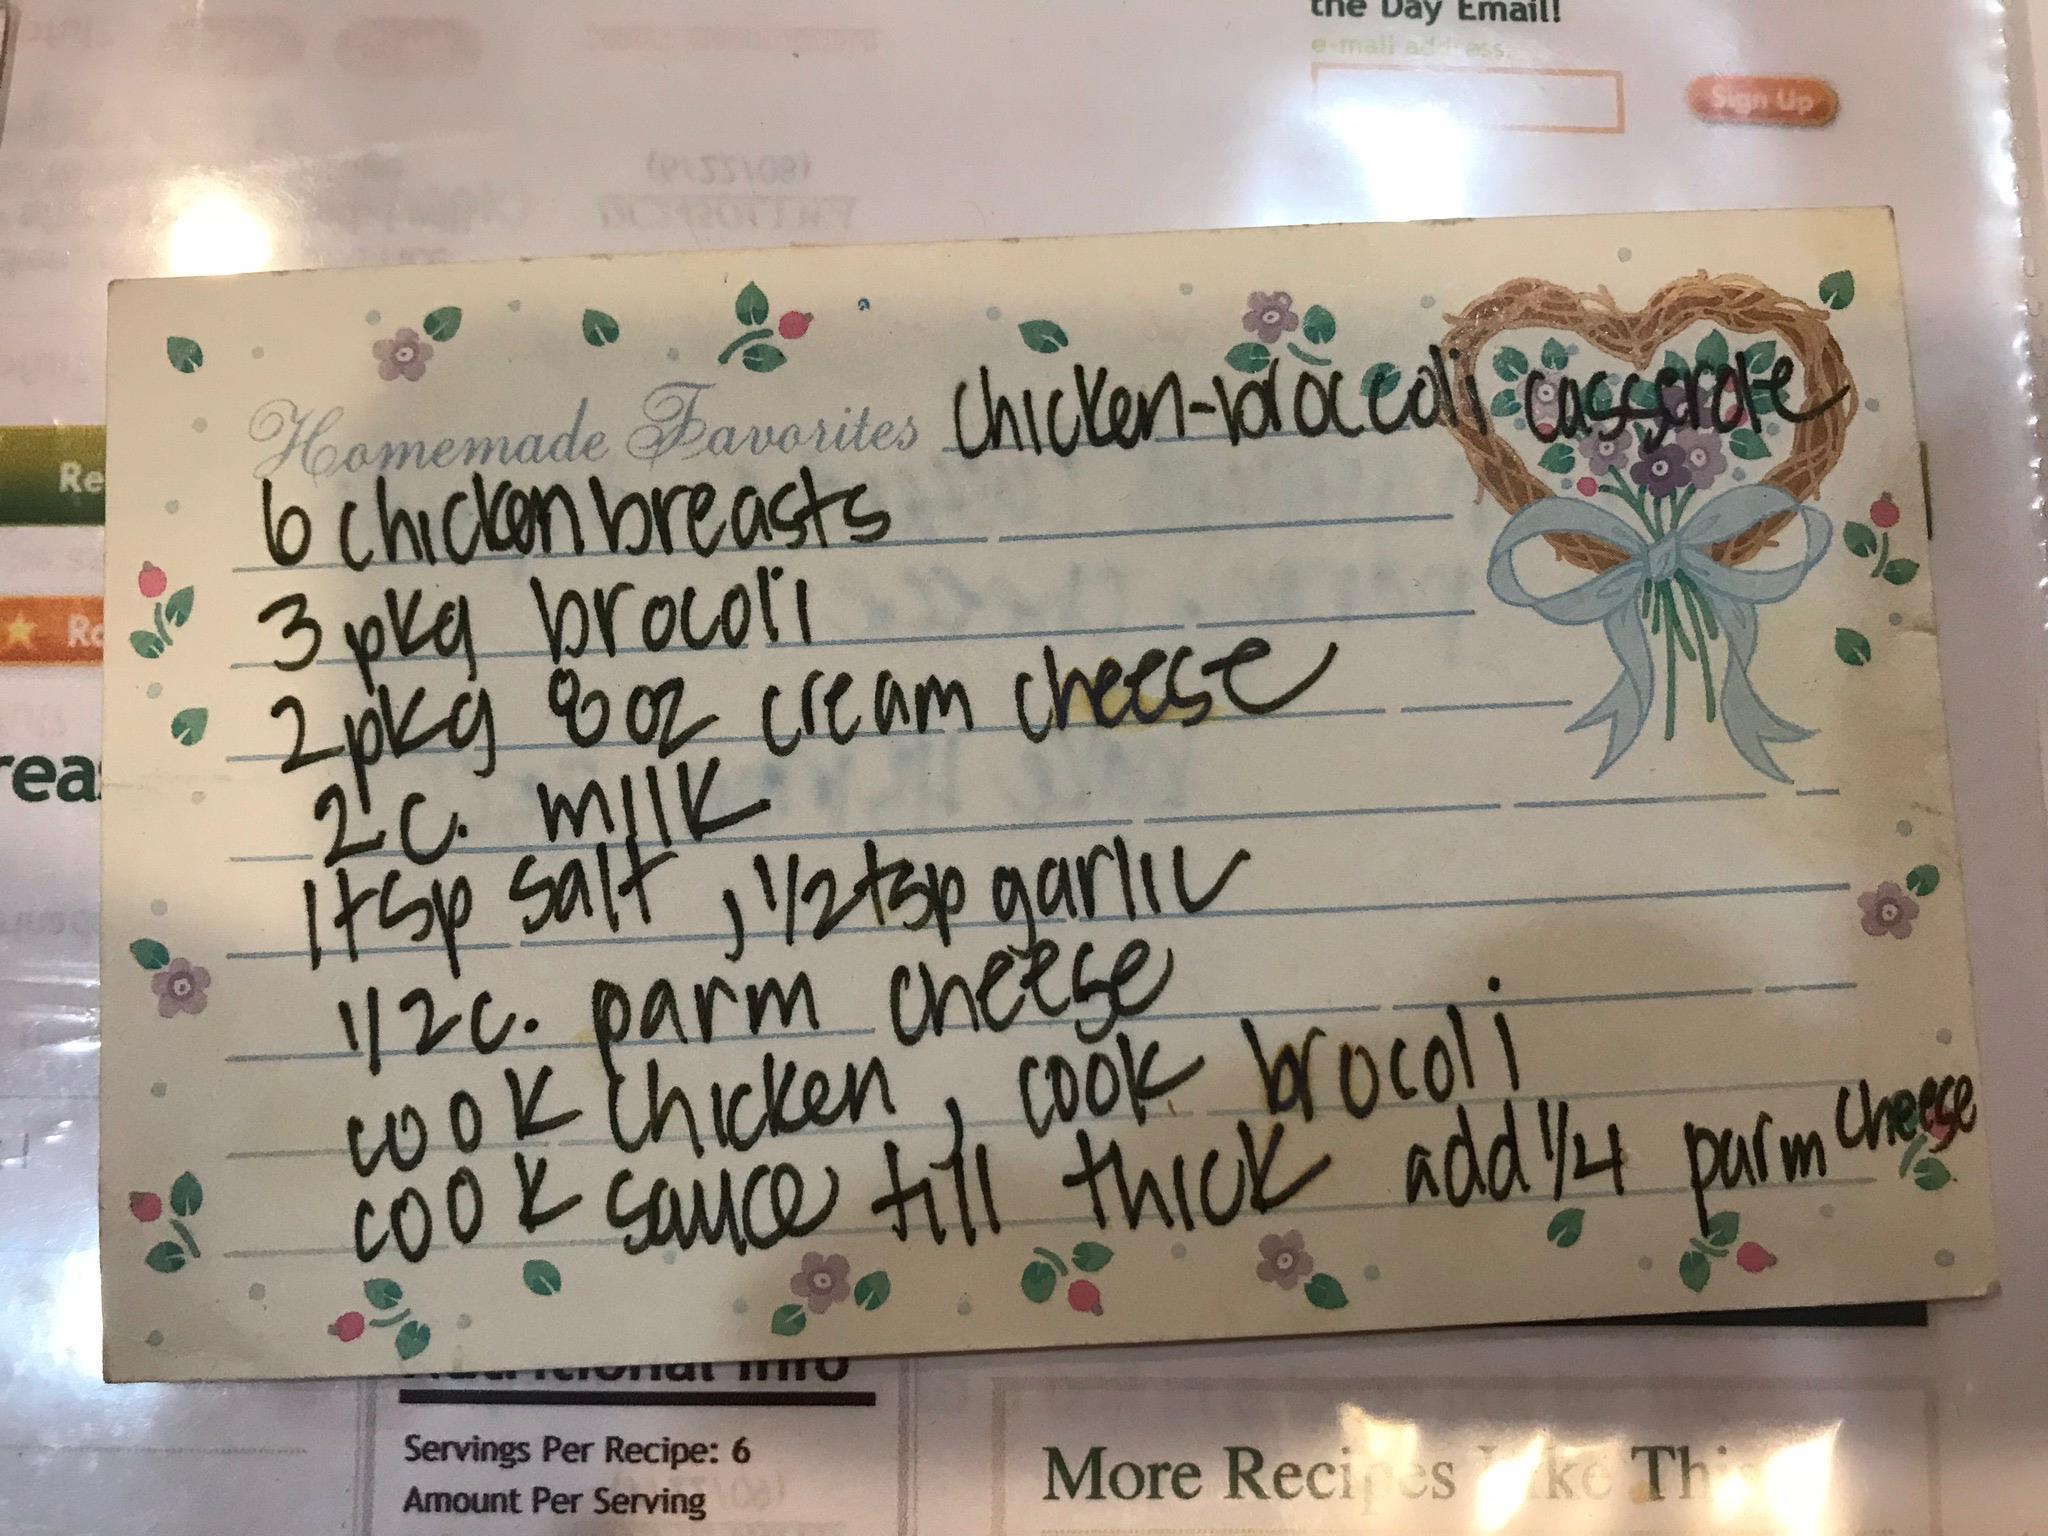 the Day Email!
e-mail address
Sign Up
Homemade Favorites chicken-broccoli casserole
6 chicken breasts
3 pkg brocoli
2 pkg 8 oz cream cheese
2 c. milk
1 tsp salt, 1/2 tsp garlic
1/2 c. parm cheese
cook chicken, cook brocoli
cook sauce till thick add 1/4 parm cheese
Nutritional Info
Servings Per Recipe: 6
Amount Per Serving
More Recipes Like This